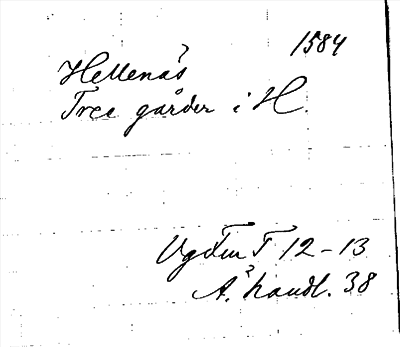 1584
Hellenås
Tree gårder i H.
Vgdm F 12-13
Å. handl. 38